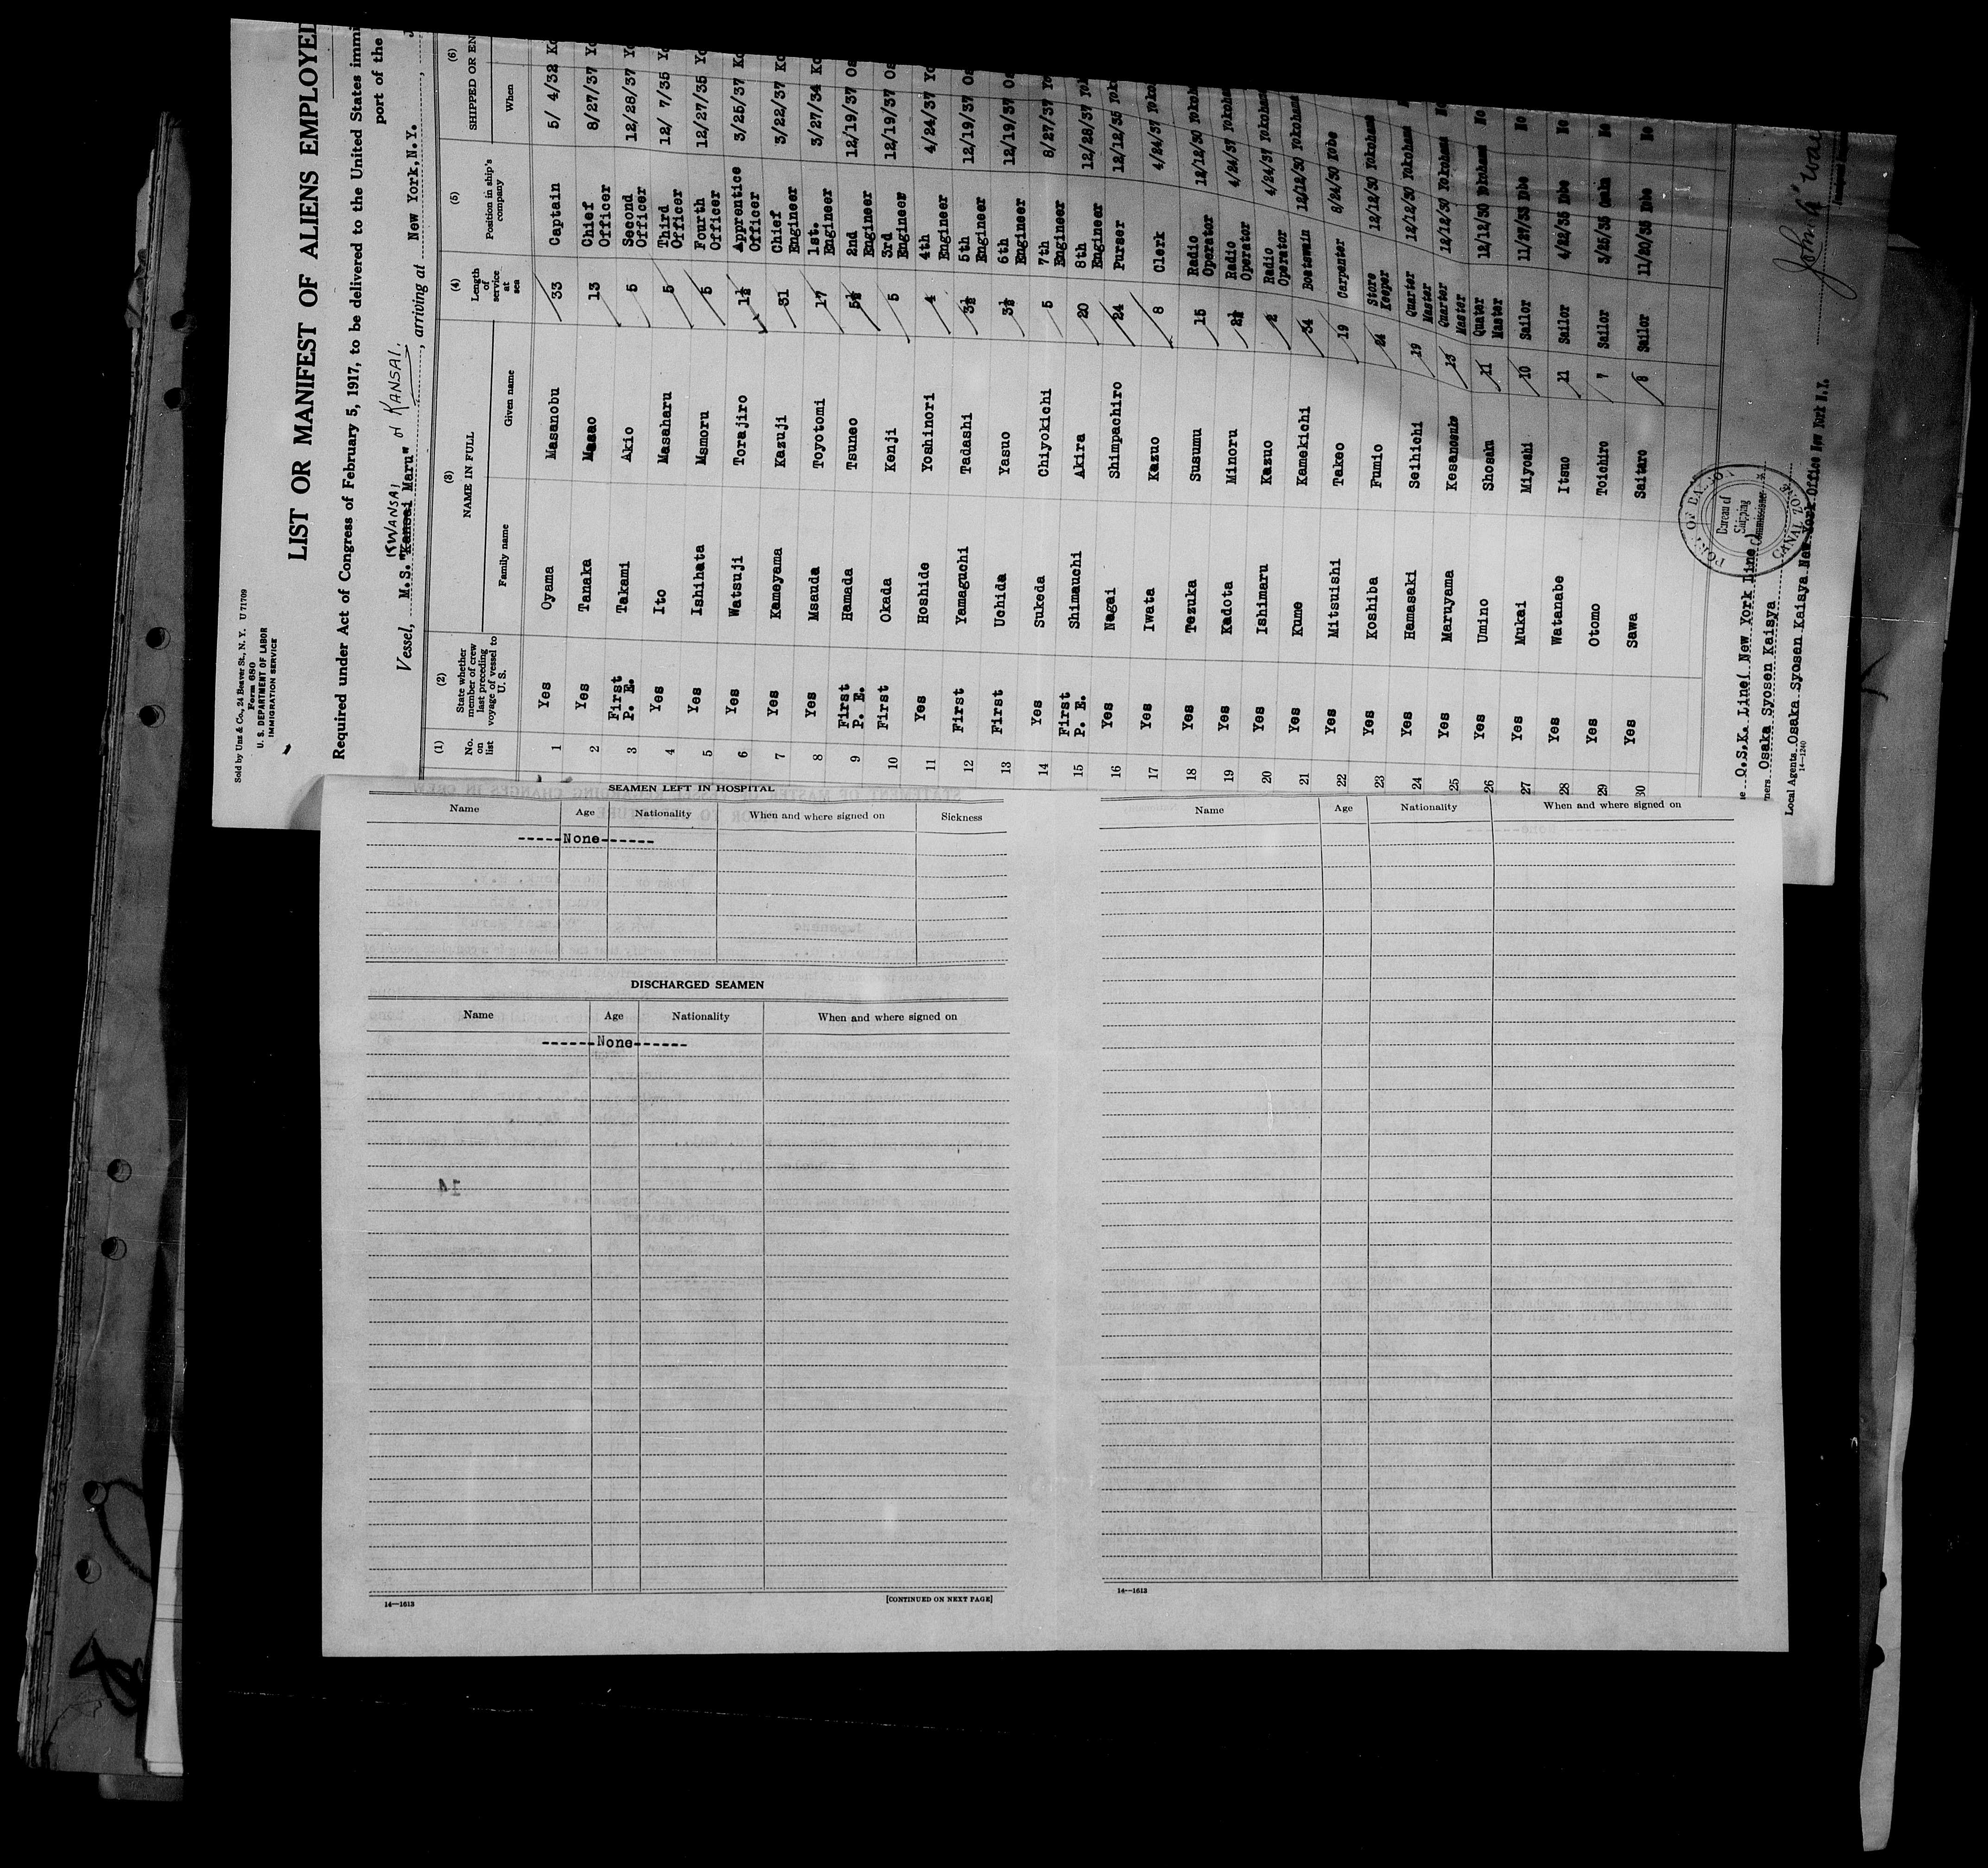 Sold by Unz & Co., 24 Beaver St., N. Y. U 71709
Form 680
U. S. DEPARTMENT OF LABOR
IMMIGRATION SERVICE
LIST OR MANIFEST OF ALIENS EMPLOYED
Required under Act of Congress of February 5, 1917, to be delivered to the United States immi
port of the
KWANSAI or KANSAI.
Vessel, M.S. "Kansai Maru", arriving at New York, N.Y.
(1) (2) (3) (4) (5) (6)
No. on list State whether member of crew last preceding voyage of vessel to U. S. NAME IN FULL Length of service at sea Position in ship's company SHIPPED OR EN
Family name Given name When
1 Yes Oyama Masanobu 33 Captain 5/ 4/32
2 Yes Tanaka Masao 13 Chief Officer 8/27/37
3 First P. E. Takami Akio 5 Second Officer 12/28/37
4 Yes Ito Masaharu 5 Third Officer 12/ 7/35
5 Yes Ishihata Msmoru 5 Fourth Officer 12/27/35
6 Yes Watsuji Torajiro 1½ Apprentice Officer 3/25/37
7 Yes Kameyama Kazuji 31 Chief Engineer 3/22/37
8 Yes Msauda Toyotomi 17 1st. Engineer 3/27/34
9 First P. E. Hamada Tsuneo 5½ 2nd Engineer 12/19/37
10 First Okada Kenji 5 3rd Engineer 12/19/37
11 Yes Hoshide Yoshinori 4 4th Engineer 4/24/37
12 First Yamaguchi Tadashi 3½ 5th Engineer 12/19/37
13 First Uchida Yasuo 3½ 6th Engineer 12/19/37
14 Yes Sukeda Chiyokichi 5 7th Engineer 8/27/37
15 First P. E. Shimauchi Akira 20 8th Engineer 12/28/37
16 Yes Nagai Shimpachiro 24 Purser 12/12/35
17 Yes Iwata Kazuo 8 Clerk 4/24/37
18 Yes Tezuka Susumu 15 Radio Operator 12/12/30
19 Yes Kadota Minoru 2½ Radio Operator 4/24/37
20 Yes Ishimaru Kazuo 2 Radio Operator 4/24/37 Yokohama
21 Yes Kume Kamekichi 34 Boatswain 12/12/30 Yokohama
22 Yes Mitsuishi Takeo 19 Carpenter 8/24/30 Kobe
23 Yes Koshiba Fumio 24 Store Keeper 12/12/30 Yokohama
24 Yes Hamasaki Seihichi 19 Quarter Master 12/12/30 Yokohama
25 Yes Maruyama Kesanosuke 13 Quarter Master 12/12/30 Yokohama No
26 Yes Umino Shosaku 11 Quater Master 12/12/30 Yokohama No
27 Yes Mukai Miyoshi 10 Sailor 11/27/33 No
28 Yes Watanabe Itsuo 11 Sailor 4/22/35 No
29 Yes Otomo Toichiro 7 Sailor 3/25/35 No
30 Yes Sawa Saitaro 8 Sailor 11/20/35 No
O.S.K. Line( New York Line )
ners Osaka Syosen Kaisya
Local Agents Osaka Syosen Kaisya New York Office New York N.Y.
14—1240
PORT OF BALBOA
Bureau of Shipping Commissioner
CANAL ZONE
SEAMEN LEFT IN HOSPITAL
Name Age Nationality When and where signed on Sickness
-----None------
DISCHARGED SEAMEN
Name Age Nationality When and where signed on
------None------
14
14—1613
[CONTINUED ON NEXT PAGE]
Name Age Nationality When and where signed on
14—1613